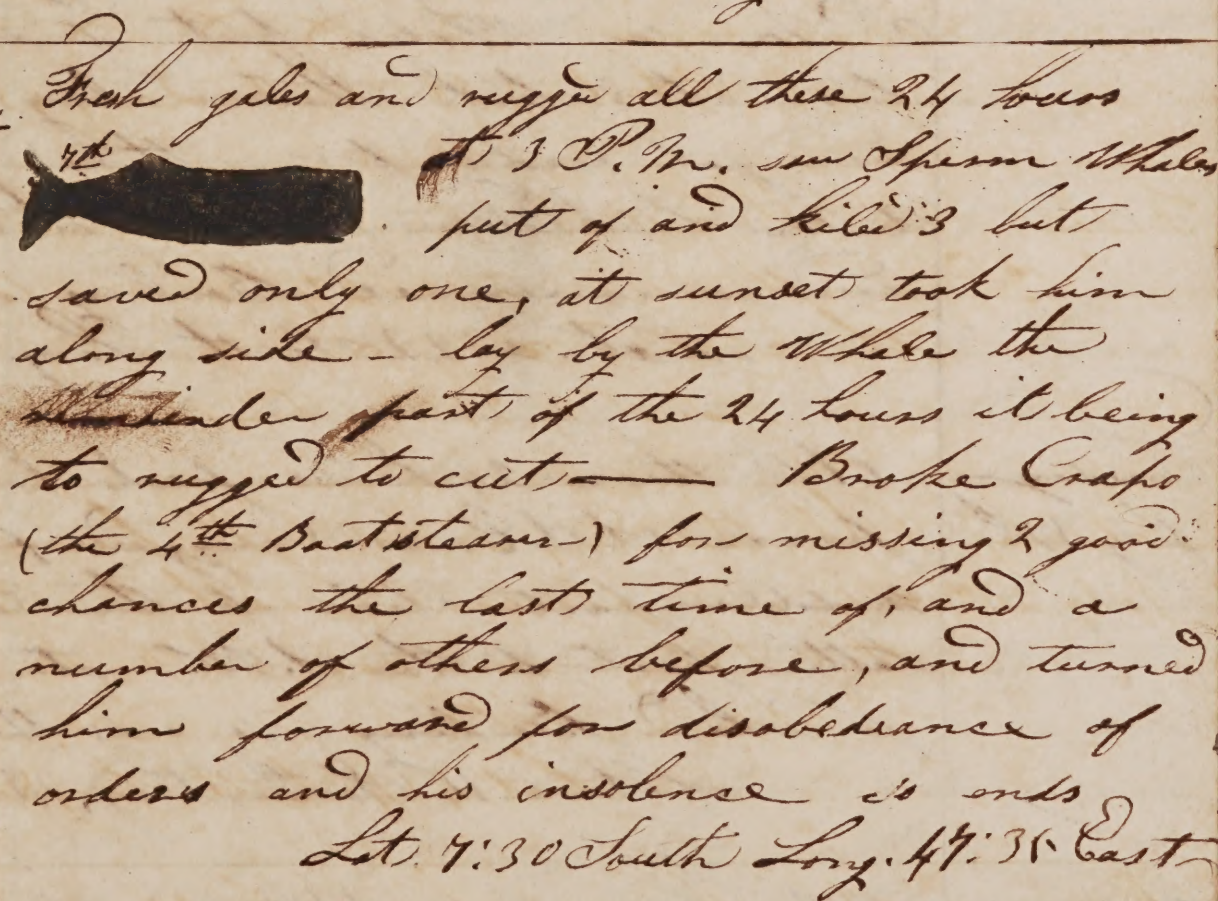 Fresh gales and rugged all these 24 hours
7th at 3 P.M. saw Sperm Whales
put of and killd 3 but
saved only one, at sunset took him
along side - lay by the Whale the
remainder part of the 24 hours it being
to rugged to cut — Broke Crapo
(the 4th Boatstearer) for missing 2 good
chances the last time of, and a
number of others before, and turned
him forward for disobedeance of
orders and his insolence so ends
Lat. 7:30 South Long. 47:35 East